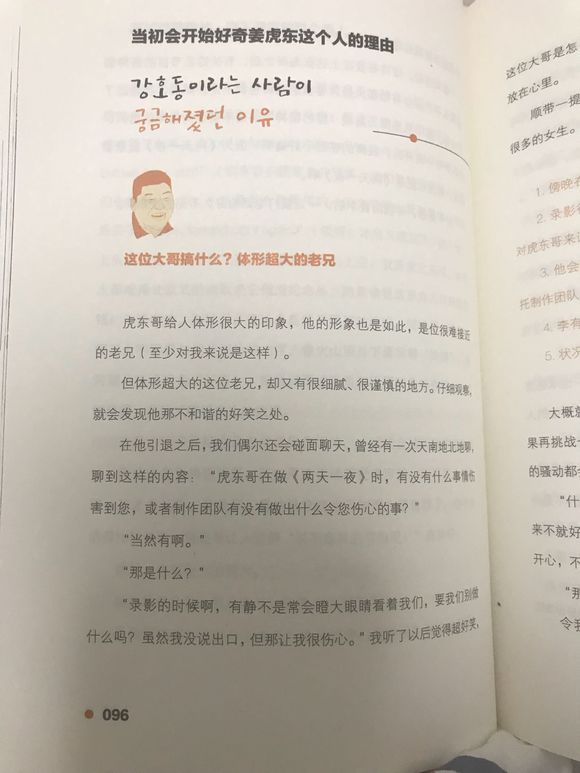 当初会开始好奇姜虎东这个人的理由
강호동이라는 사람이
궁금해졌던 이유
这位大哥搞什么？体形超大的老兄
虎东哥给人体形很大的印象，他的形象也是如此，是位很难接近
的老兄（至少对我来说是这样）。
但体形超大的这位老兄，却又有很细腻、很谨慎的地方。仔细观察，
就会发现他那不和谐的好笑之处。
在他引退之后，我们偶尔还会碰面聊天，曾经有一次天南地北地聊，
聊到这样的内容：“虎东哥在做《两天一夜》时，有没有什么事情伤
害到您，或者制作团队有没有做出什么令您伤心的事？”
“当然有啊。”
“那是什么？”
“录影的时候啊，有静不是常会瞪大眼睛看着我们，要我们别做
什么吗？虽然我没说出口，但那让我很伤心。”我听了以后觉得超好笑，
096
这位大哥是怎
放在心里。
顺带一提
很多的女生。
1. 傍晚在
2. 录影
对虎东哥来说
3. 他会
托制作团队
4. 李有
5. 状况
大概就
果再挑战一
的骚动都
“什
来不就好
开心，不
“那
令我